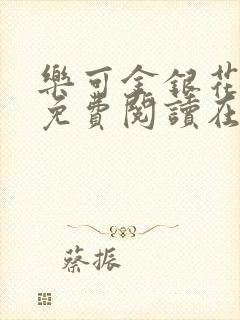 樂可金銀花
免費閱讀在
蔡振